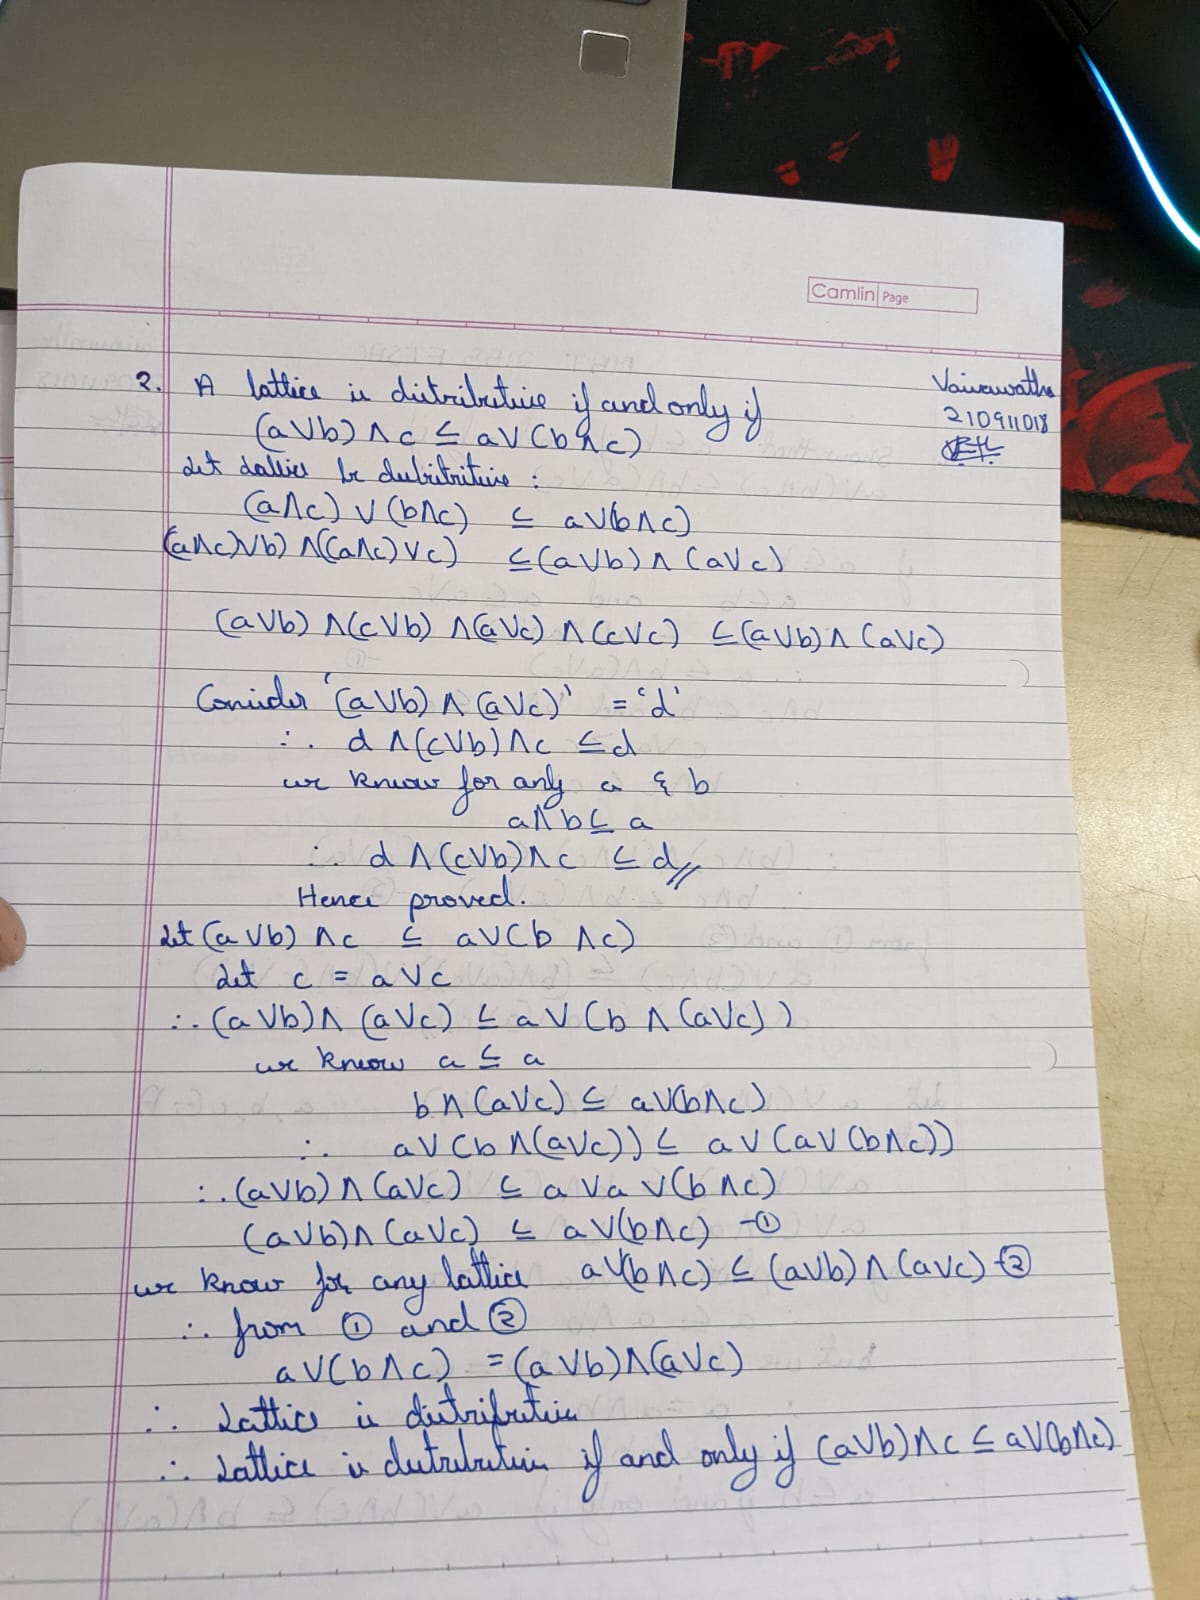 Camlin Page
Vaivawatha
210911018
2. A lattice is distributive if and only if
(a∨b)∧c ≤ a∨(b∧c)
Let Lattice be dubitritive :
(a∧c) ∨ (b∧c) ≤ a∨(b∧c)
(a∧c)∨b) ∧((a∧c)∨c) ≤(a∨b)∧(a∨c)
(a∨b)∧(c∨b)∧(a∨c)∧(c∨c) ≤(a∨b)∧(a∨c)
Consider '(a∨b)∧(a∨c)' = 'd'
∴ d∧(c∨b)∧c ≤d
we know for any a & b
a∧b≤ a
∴ d∧(c∨b)∧c ≤ d//
Hence proved.
Let (a∨b)∧c ≤ a∨(b∧c)
Let c = a∨c
∴ (a∨b)∧(a∨c) ≤ a∨(b∧(a∨c))
we know a ≤ a
b∧(a∨c) ≤ a∨(b∧c)
∴ a∨(b∧(a∨c)) ≤ a∨(a∨(b∧c))
∴ (a∨b)∧(a∨c) ≤ a∨a∨(b∧c)
(a∨b)∧(a∨c) ≤ a∨(b∧c) -①
we know for any lattice a∨(b∧c) ≤ (a∨b)∧(a∨c) -②
∴ from ① and ②
a∨(b∧c) =(a∨b)∧(a∨c)
∴ Lattice is distributive
∴ Lattice is distributive if and only if (a∨b)∧c ≤ a∨(b∧c)